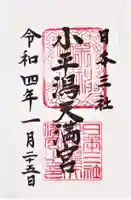 日本三社
小平潟天満宮
令和四年一月二十五日